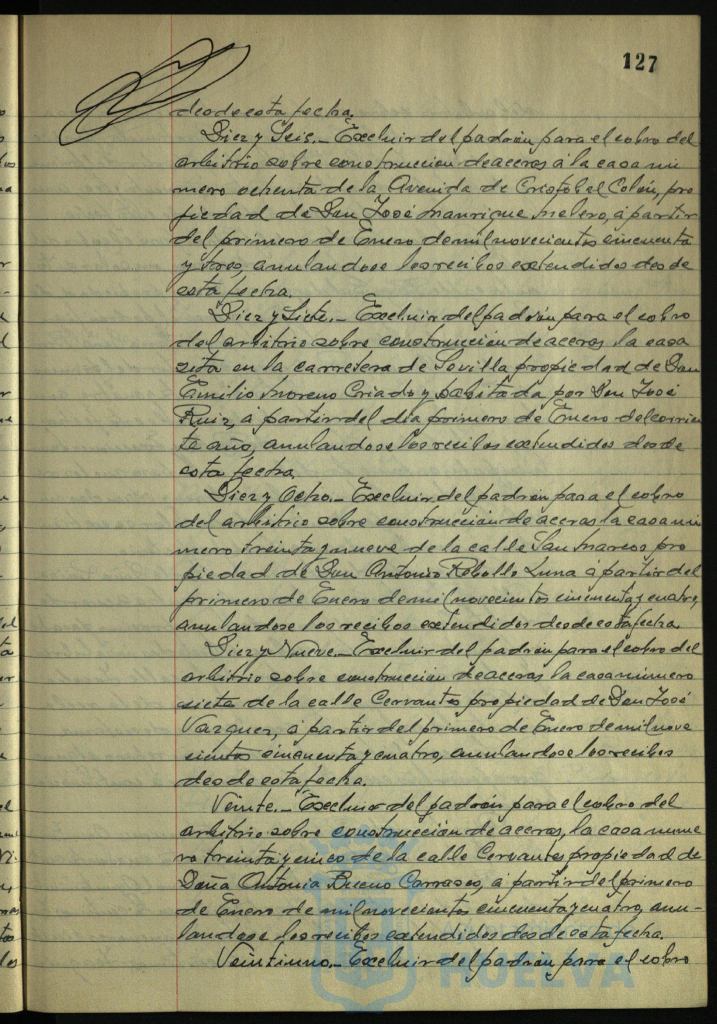 127
desde esta fecha.
Diez y Seis.- Excluir del padrón para el cobro del
arbitrio sobre construcción de aceras á la casa nú
mero ochenta de la Avenida de Cristobal Colón, pro
piedad de Don José Manrique Melero, á partir
del primero de Enero de mil novecientos cincuenta
y tres, anulandose los recibos extendidos desde
esta fecha.
Diez y Siete.- Excluir del padrón para el cobro
del arbitrio sobre construcción de aceras la casa
sita en la carretera de Sevilla propiedad de Don
Emilio Moreno Criado y habitada por Don José
Ruiz, á partir del dia primero de Enero del corrien
te año, anulandose los recibos extendidos desde
esta fecha.
Diez y Ocho.- Excluir del padrón para el cobro
del arbitrio sobre construcción de aceras la casa nú
mero treinta y nueve de la calle San Marcos pro
piedad de Don Antonio Rebollo Luna á partir del
primero de Enero de mil novecientos cincuenta y cuatro,
anulandose los recibos extendidos desde esta fecha.
Diez y Nueve.- Excluir del padrón para el cobro del
arbitrio sobre construcción de aceras la casa número
siete de la calle Cervantes propiedad de Don José
Vazquez, á partir del primero de Enero de mil nove
cientos cincuenta y cuatro, anulandose los recibos
desde esta fecha.
Veinte.- Excluir del padrón para el cobro del
arbitrio sobre construcción de aceras, la casa núme
ro treinta y cinco de la calle Cervantes propiedad de
Doña Antonia Bueno Carrasco, á partir del primero
de Enero de mil novecientos cincuenta y cuatro, anu-
landose los recibos extendidos desde esta fecha.
Veintiuno.- Excluir del padrón para el cobro
HUELVA